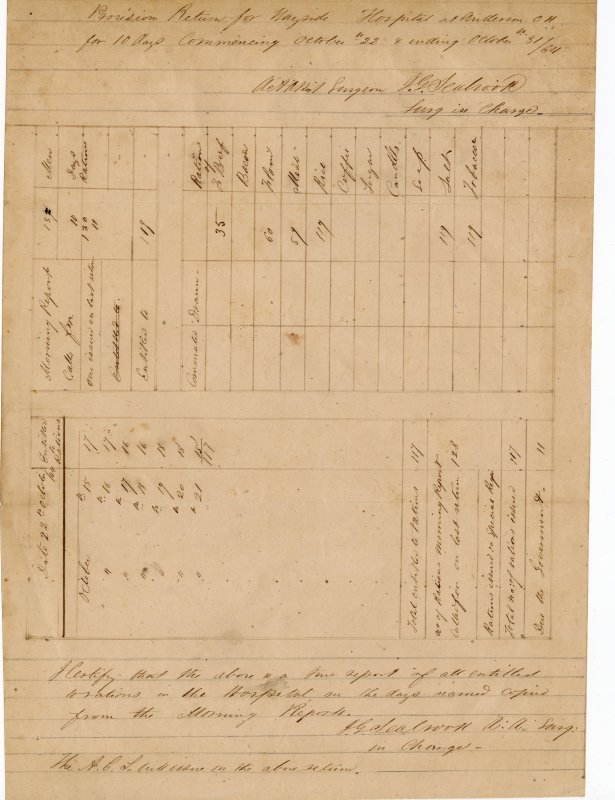 Provision Return for Wayside Hospital at Anderson C.H.
for 10 days Commencing October 22 & ending October 31st /64
Act Asst Surgeon J.G. Seabrook
Surg in Charge.
Men
Days
Rations
Morning Report
Calls for
10
130
Over issued on last return
11
Entitled to
Entitled to
119
Commodities Drawn
Rations
Beef
35
Bacon
Flour
60
Meal
59
Rice
119
Coffee
Sugar
Candles
Soap
Salt
119
Tobacco
119
Date 22 October
Entitled
to
Rations
October 15 17
" 16 17
" 17 16
" 18 16
" 19 18
" 20 18
" 21
117
Total entitled to rations 117
No of Rations Morning Report
Called for on last return 128
Rations issued on Special Reqn
Total no. of rations issued 117
Due the Government 11
I Certify that the above is a true report of all entitled
to rations in the Hospital on the days named copied
from the Morning Reports.
J.G. Seabrook A.A. Surg.
in Charge.
The A.C.S. will issue on the above return.